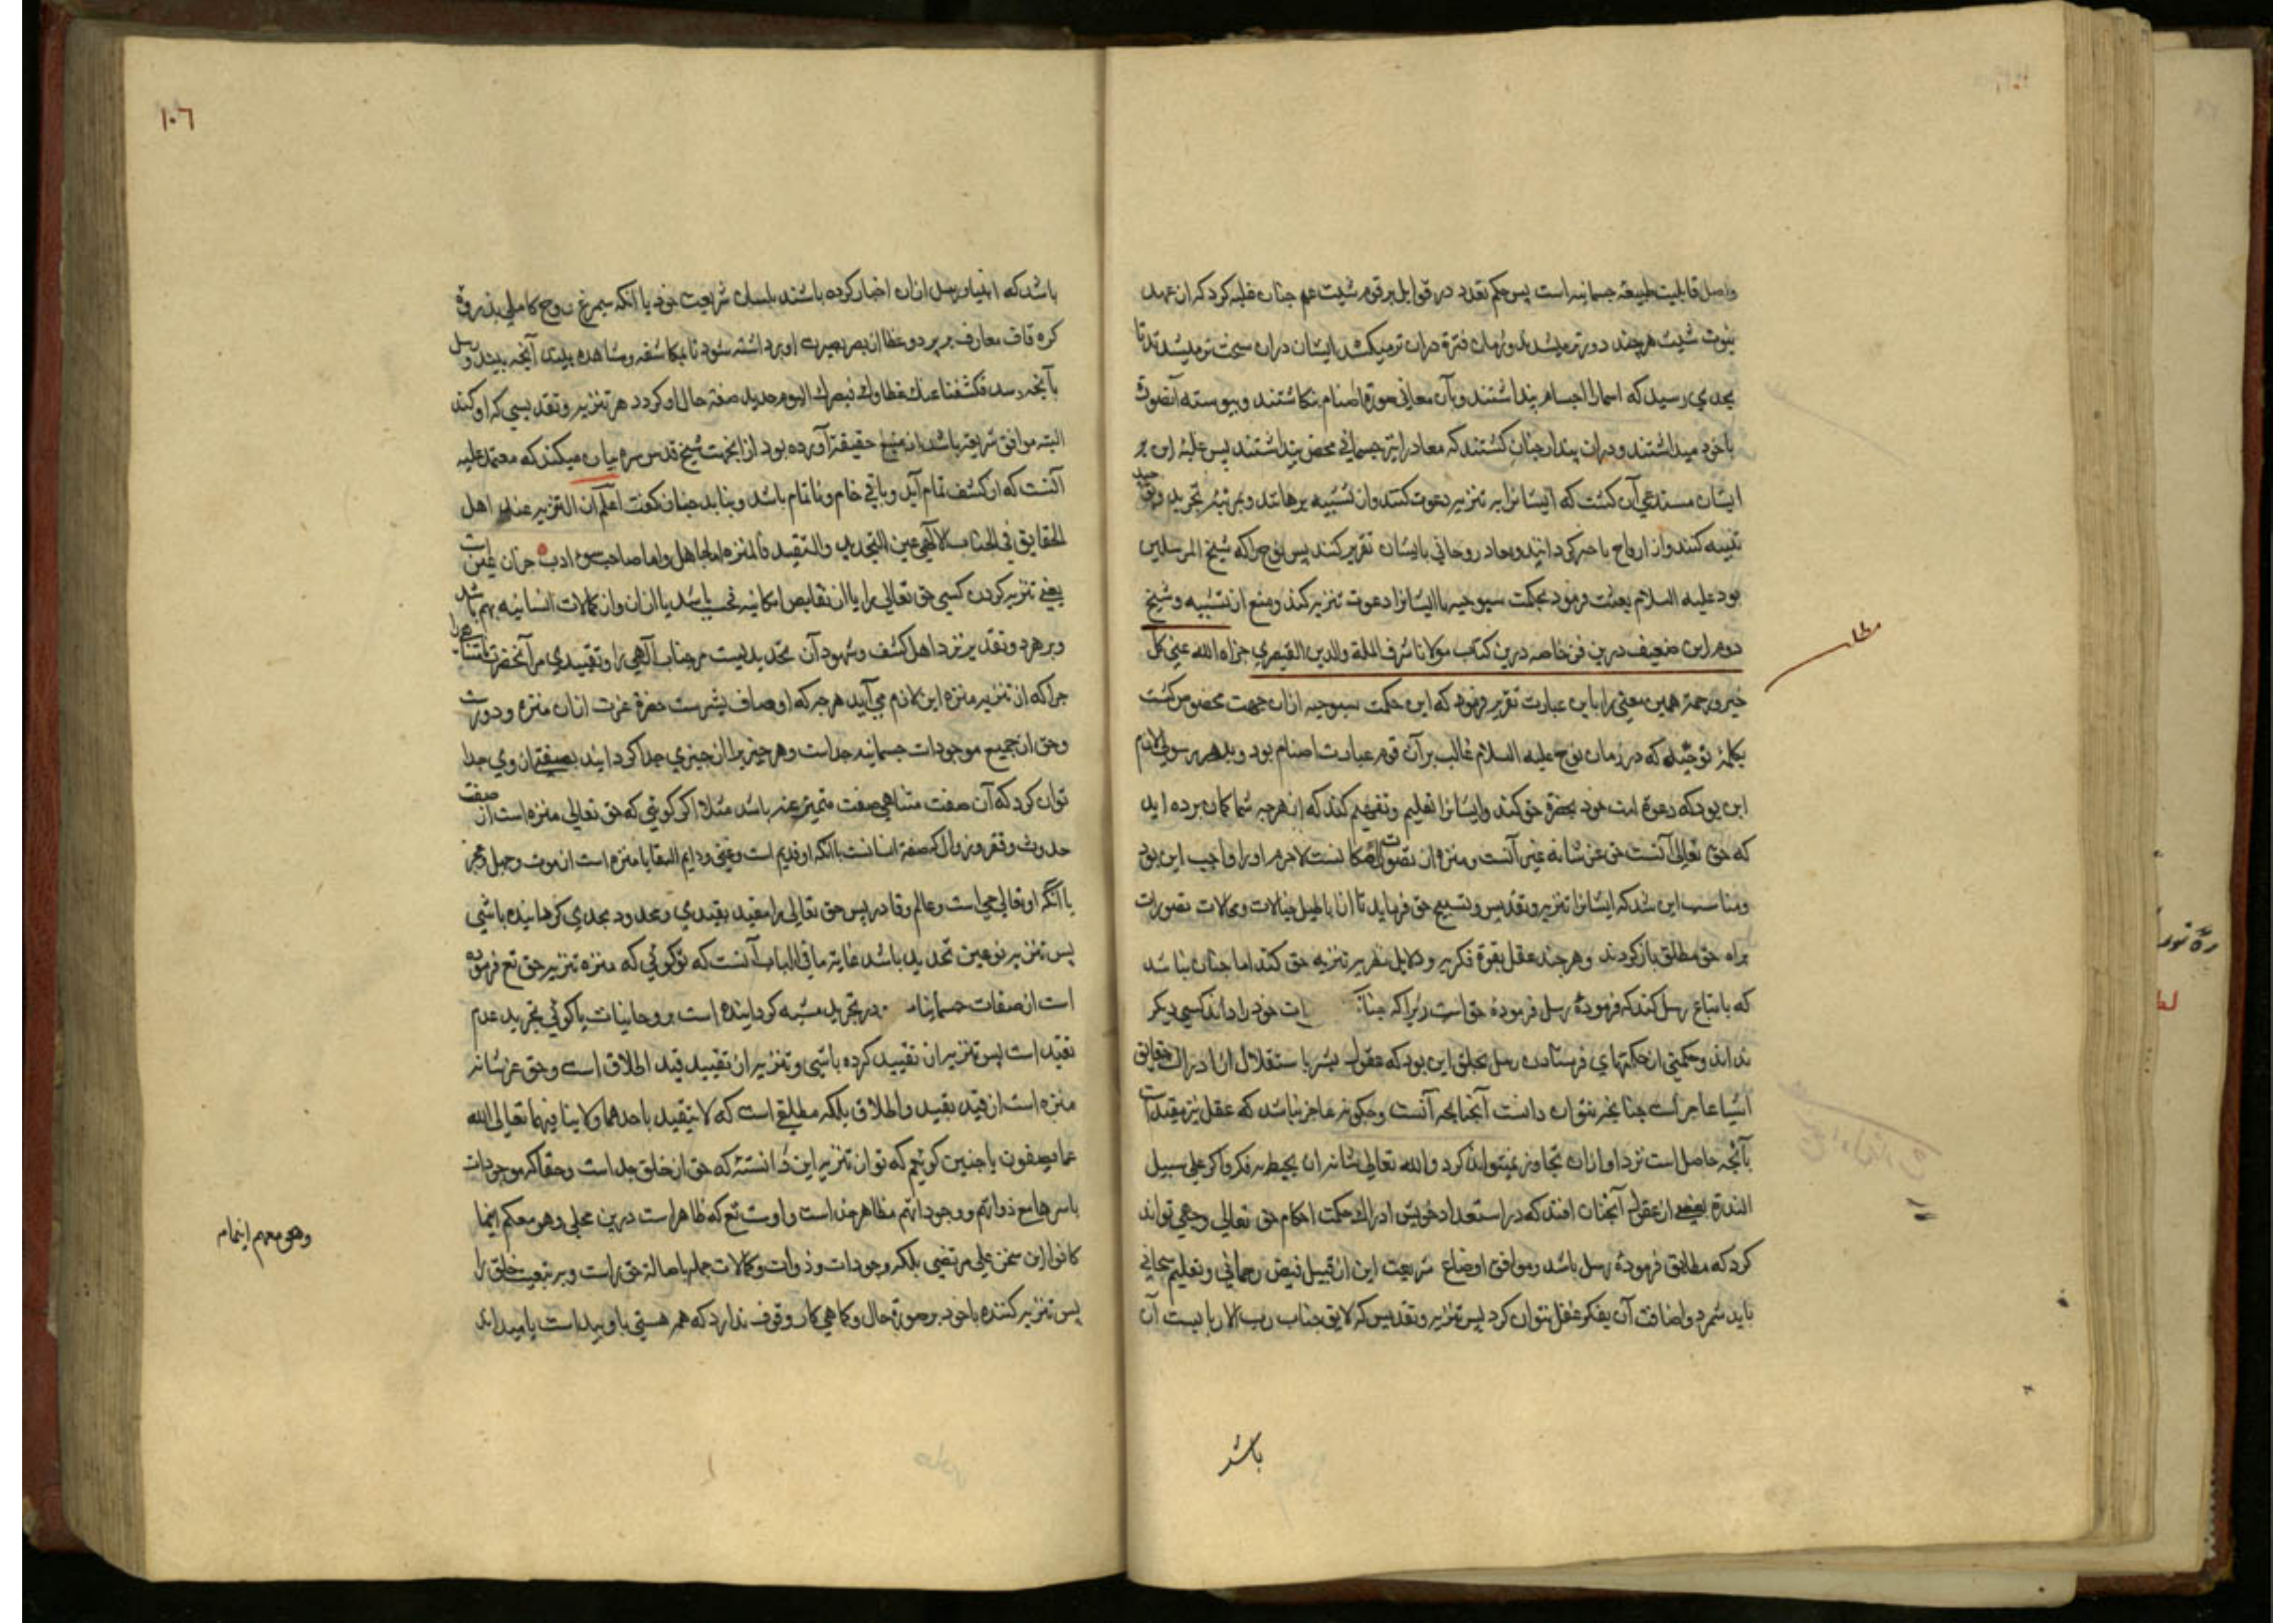 واصل قابلیت طبیعه جسمانیه است پس حکم تعدد در قوابل بر قوم شیث عم چنان غلبه کرد که از عهد
بنوت شیث هر چند دورتر میشدند و زمان فترة دران تر میکشد ایشان دران سخت تر میشدند تا
بحدی رسید که اسما را اجسام پنداشتند و آن معانی صورة اصنام بنکاشتند و پیوسته آنصورت
با خود میداشتند و دران پندار چنان کشتند که معاد را نیز جسمانی محض پنداشتند پس غلبهٔ این بر
ایشان مستدعی آن کشت که ایشانرا بر تنزیه دعوت کنند و از تشبیه برهانند و بمرتبهٔ تجرید و
تنبیه کنند و از ارواح با خبر کردانند و معاد روحانی بایشان تقریر کنند پس نوح را که شیخ المرسلین
بود علیه السلام بعثت فرمود بحکمت سبوحیه تا ایشانرا دعوت تنزیه کند و منع از تشبیه و شیخ
دوم این ضعیف درین فن خاصه درین کتاب مولانا شرف الملة والدین القیصری جزاه الله عنی کل
خیر ورحمة همین معنی را باین عبارت تقریر فرمود که این حکمت سبوحیه ازان جهت مخصوص کشت
بکلمهٔ نوحیه که در زمان نوح علیه السلام غالب بر آن قوم عبادت اصنام بود و بر هر رسولی لازم
این بود که دعوة امت خود بحضرة حق کند و ایشانرا تعلیم و تفهیم کند که از هر چه شما کمان برده اید
که حق تعالی آنست حق عز شانه غیر آنست و منزه از تصورات شماست لاجرم او را واجب این بود
ومناسب این شد که ایشانرا تنزیه وتقدیس وتسبیح حق فرماید تا از اباطیل خیالات ومحالات تصورات
براه حق مطلق باز کردند و هر چند عقل بقوة فکریه و دلایل نظریه تنزیه حق کند اما چنان نباشد
که باتباع رسل کند که فرمودهٔ رسل فرمودهٔ حق است زیرا که چنانکه ات خود را داند کسی دیکر
نداند و حکمتی از حکمتهای فرستادن رسل بخلق این بود که عقول بشر باستقلال از ادراک حقایق
اشیا عاجز است چنانچه نتوان دانست آنچنانچه آنست و چکونه عاجز نباشد که عقل نیز مقید است
بآنچه حاصل است نزد او ازان تجاوز نمیتواند کرد والله تعالی شانه ان یحیط به فکر فاکر علی سبیل
الندرة بعضی از عقول آنچنان افتد که در استعداد خویش ادراک حکمت احکام حق تعالی وحی تواند
کرد که مطابق فرمودهٔ رسل باشد و موافق اوضاع شریعت این از قبیل فیض رحمانی وتعلیم سبحانی
باید شمرد و اضافت آن بفکر عقل نتوان کرد پس تنزیه وتقدیس که لایق جناب رب الاربابست آن
باشد
۱۰٦
باشد که انبیا و رسل ازان اخبار کرده باشند بلسان شریعت خود یا آنکه سیمرغ روح کاملی بذروهٔ
کره قاف معارف بر پرد و غطا از بصر بصیرت او برداشته شود تا بمکاشفه ومشاهده ببیند آنچه بیند و رسد
بآنچه رسد فکشفنا عنک غطاءک فبصرک الیوم حدید صفة حال او کردد هر تنزیه وتقدیسی که او کند
البته موافق شریعة باشد از منبع حقیقة آورده بود ازانجهت شیخ قدس سره بیان میکند که معتمد علیه
آنست که از کشف تمام آید و باقی خام و ناتمام باشد و بنابر چنان کفت اعلم ان التنزیه عند اهل
الحقایق فی الجناب الالهی عین التحدید والتقیید فالمنزه اما جاهل واما صاحب سوء ادب
یعنی تنزیه کردن کسی حق تعالی را یا از نقایص امکانیه فحسب باشد یا ازان واز کمالات انسانیه بهم باشد
و بر هر دو تقدیر نزد اهل کشف وشهود آن تحدیدیست مر جناب آلهی را وتقییدی مر آنحضرت
چرا که از تنزیه منزه این لازم می آید هر چه که اوصاف بشریست حضرة عزت ازان منزه ودورست
وحق از جمیع موجودات جسمانیه جداست و هر چیز را از چیزی جدا کردانید بصفتی از وی جدا
توان کرد که آن صفت متناهی صفت متمیز عنه باشد مثلا اکر کوئی که حق تعالی منزه است از صفت
حدوث وفقر وزوال که صفة انسانست بآنکه او قدیم است وغنی ودایم البقا یا منزه است از موت وجهل وعجز
باآنکه او تعالی حی است وعالم وقادر پس حق تعالی را مقید بقیدی ومحدود بحدی کرداینده باشی
پس تنزیه تو عین تحدید باشد غایة ما فی الباب آنست که تو کوئی که منزه تنزیه حق تع فرموده
است از صفات جسمانیات در تجرید مشبه کرداینده است بروحانیات یا کوئی تجرید عدم
تقید است پس تنزیه از تقیید کرده باشی وتنزیه از تقیید قید اطلاق است وحق عز شانه
منزه است از قید تقید واطلاق بلکه مطلقی است که لا یتقید باحدهما ولا ینافیهما تعالی الله
عما یصفون یا چنین کوئیم که تو از تنزیه این دانستهٔ که حق از خلق جداست وحقا که موجودات
باسرها مع ذواتهم ووجوداتهم مظاهر حق است واوست تع که ظاهر است درین مجلی وهو معکم اینما
کانوا این سخن علی مرتضی بلکه وجودات وذوات وکمالات جمله باصالة حق راست وبر تبعیت خلق را
پس تنزیه کننده با خود بر صورة حال وکماهی کار وقوف ندارد که همه هستی با وپیداست یا میداند
وهو معهم اینما